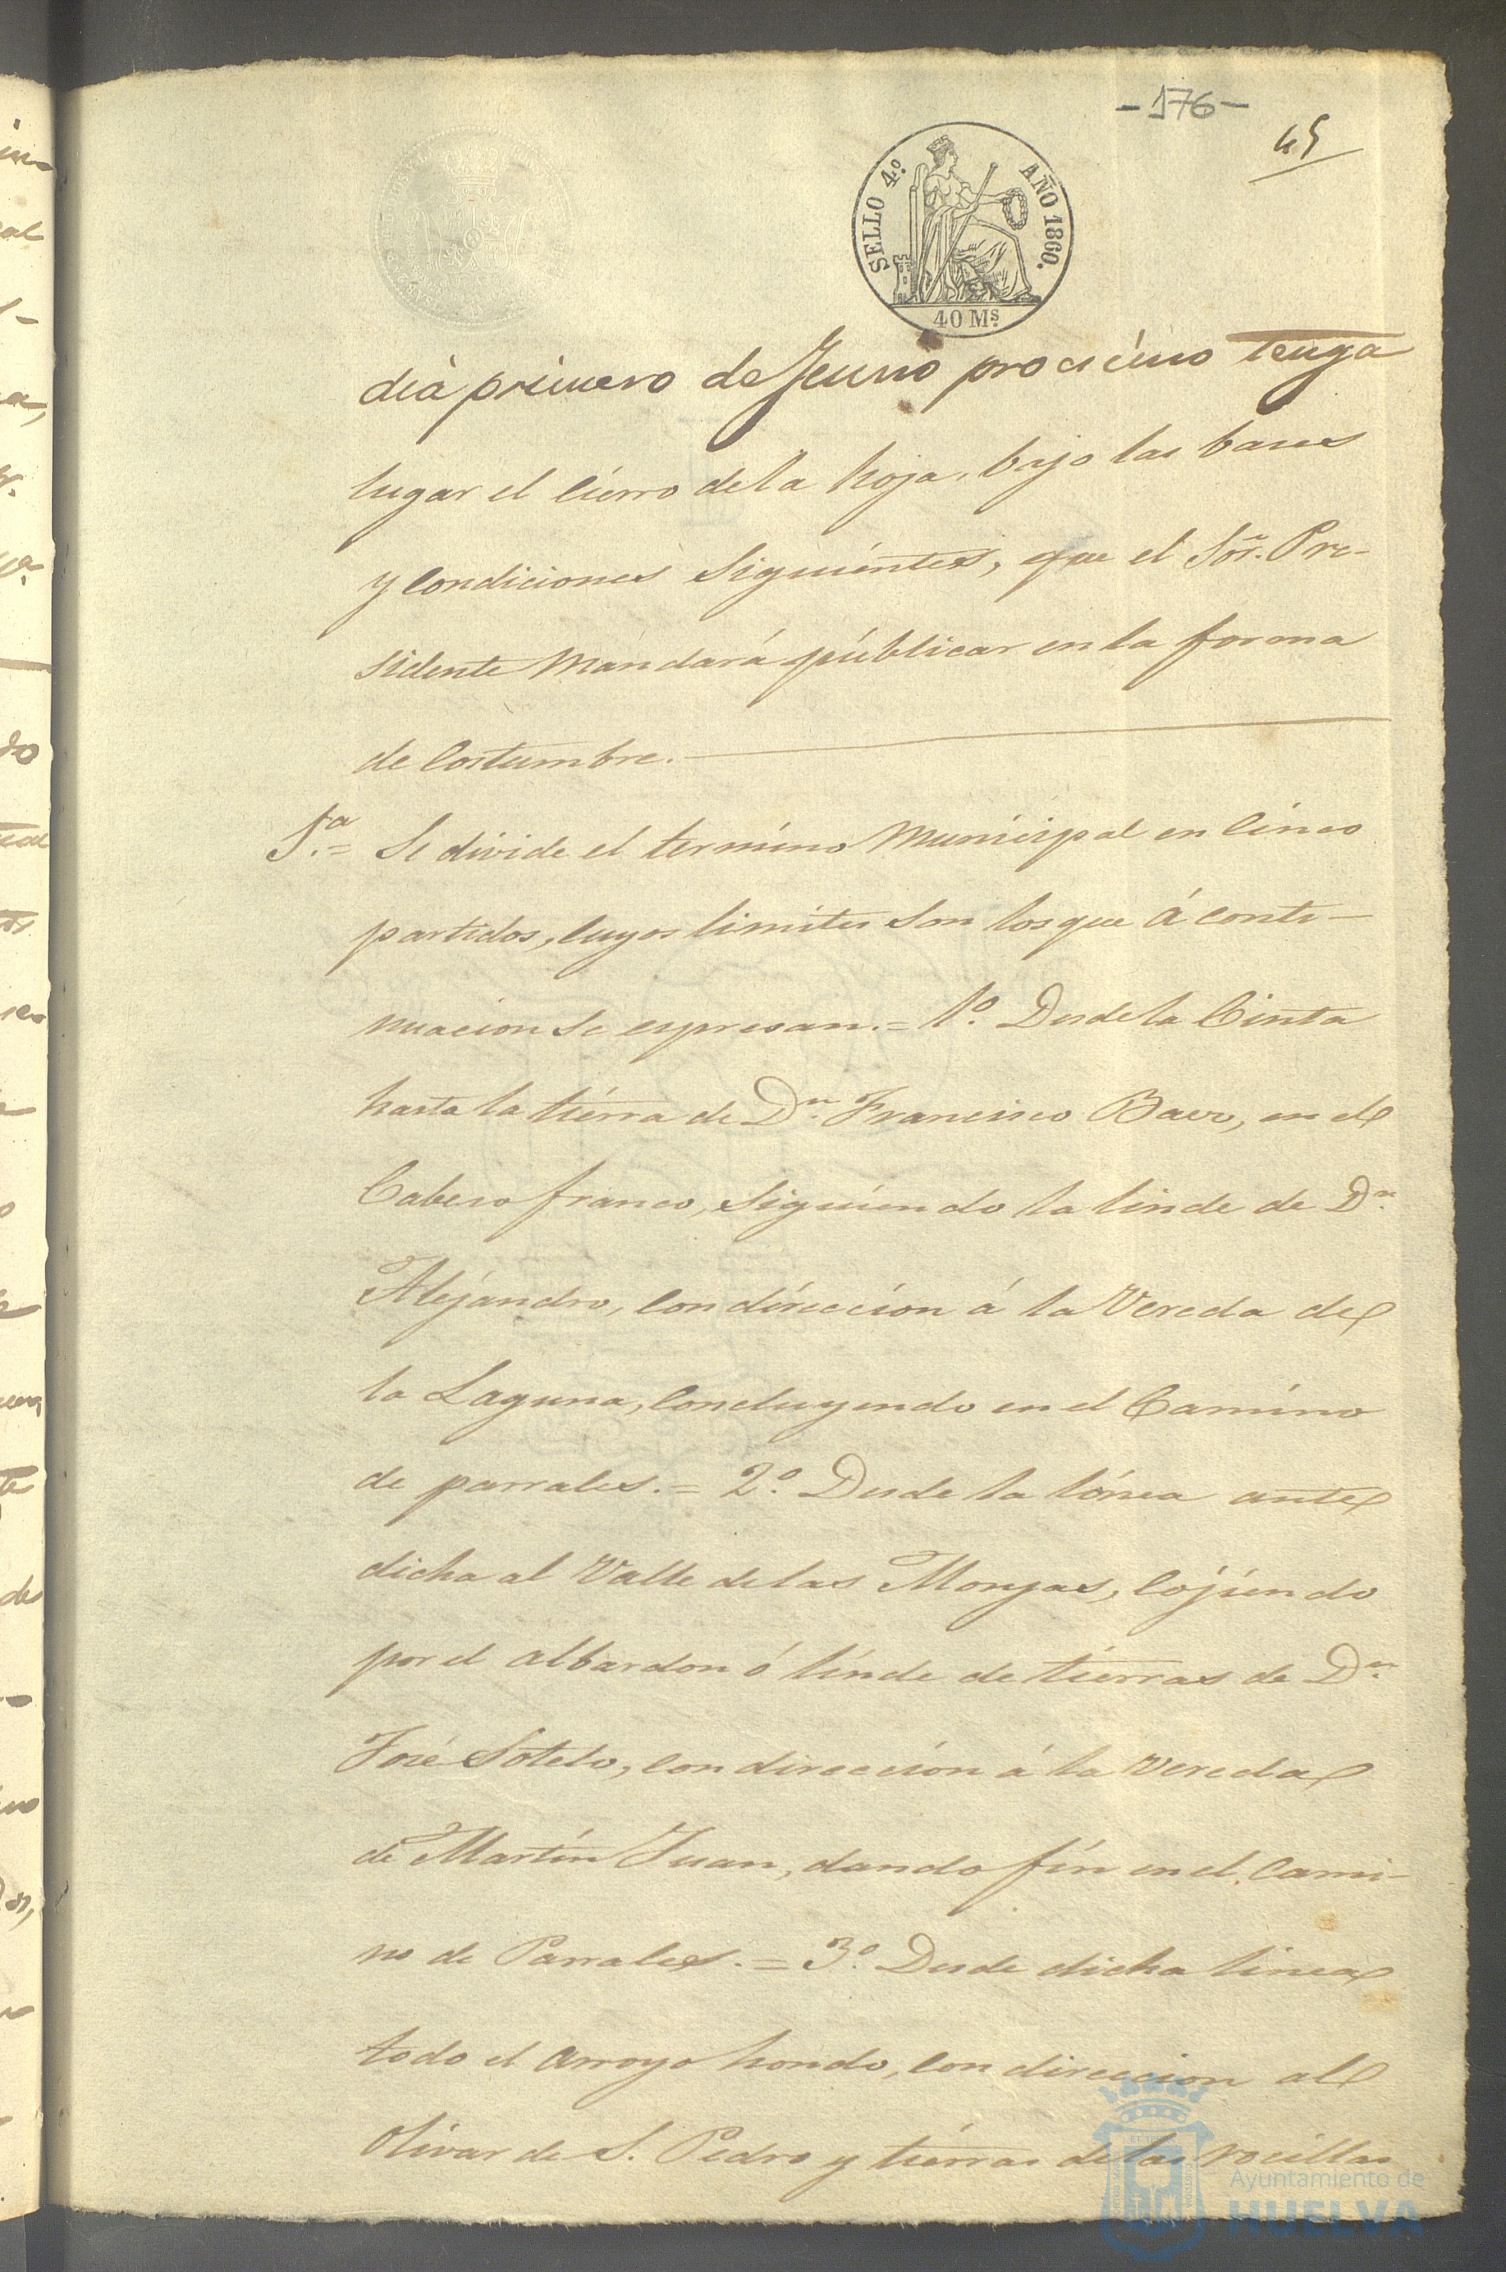 -176-
45
SELLO 4.º AÑO 1860.
40 M.s
dia primero de Junio procsimo tenga
lugar el cierro de la hoja, bajo las bases
y condiciones siguientes, que el Sor. Pre-
sidente mandará públicar en la forma
de costumbre.
1.ª = Se divide el termino Municipal en cinco
partidos, cuyos limites son los que á conti-
nuacion se espresan. = 1.º Desde la Cinta
hasta la tierra de Dn. Francisco Baer, en el
Cabeso franco, siguiendo la linde de Dn.
Alejandro, con dirección á la Vereda de
la Laguna, concluyendo en el Camino
de parrales. = 2.º Desde la línea ante
dicha al Valle de las Monjas, cojiendo
por el albardon ó linde de tierras de Dn.
José Sotelo, con dirección á la vereda
de Martín Juan, dando fin en el Cami-
no de Parrales. = 3.º Desde dicha linea
todo el arroyo hondo, con direccion al
Olivar de S. Pedro y tierras de las
Ayuntamiento de
HUELVA